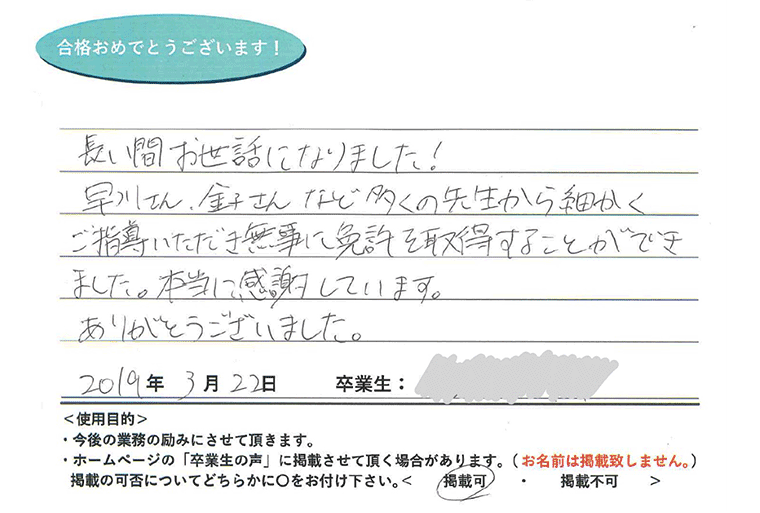 合格おめでとうございます！
長い間お世話になりました！
早川さん、金子さんなど多くの先生から細かく
ご指導いただき無事に免許を取得することができ
ました。本当に感謝しています。
ありがとうございました。
2019年 3月 22日 卒業生：
＜使用目的＞
・今後の業務の励みにさせて頂きます。
・ホームページの「卒業生の声」に掲載させて頂く場合があります。（お名前は掲載致しません。）
掲載の可否についてどちらかに〇をお付け下さい。＜ 掲載可 ・ 掲載不可 ＞